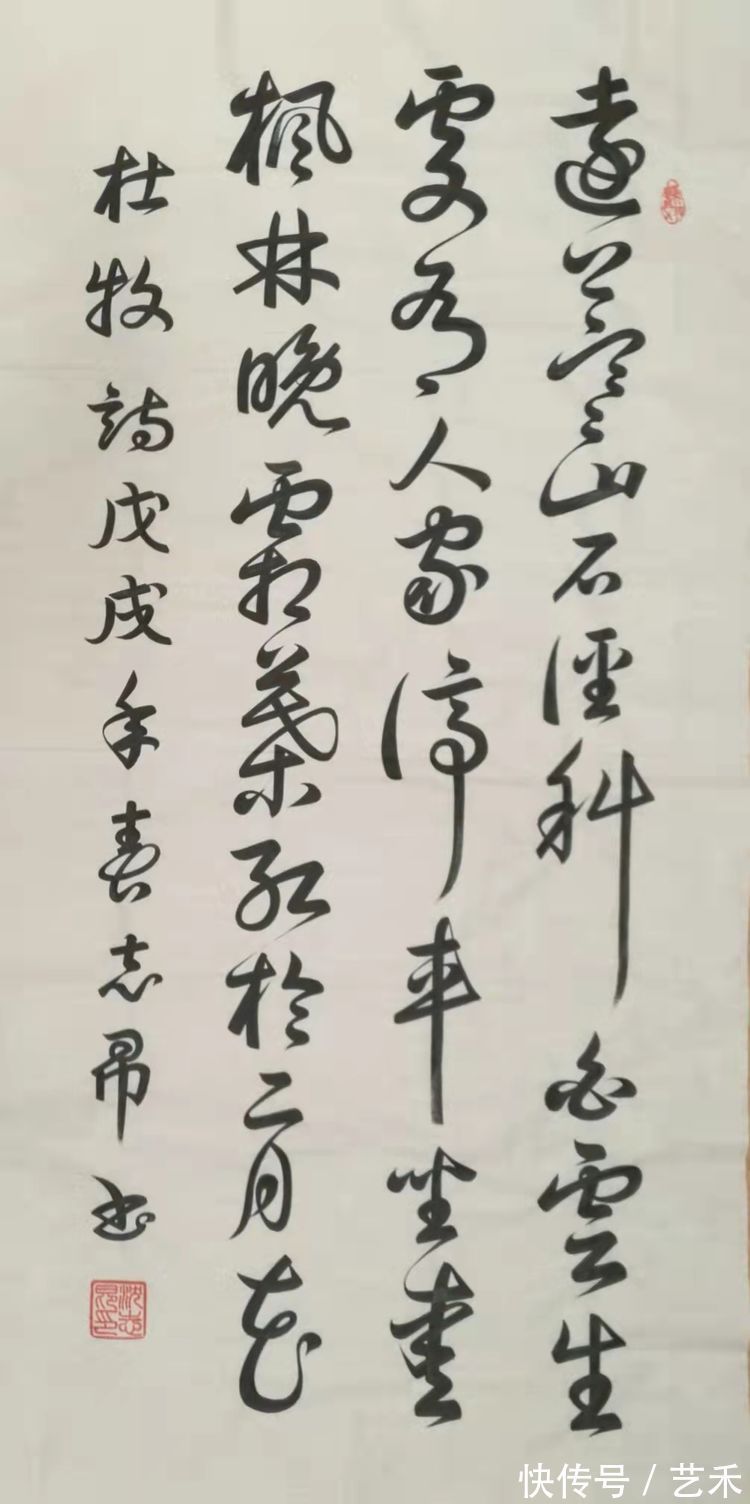 遠上寒山石徑斜白雲生
處有人家停車坐愛
楓林晚霜葉紅於二月花
杜牧詩戊戌年春志昂书
沈志昂印
快传号 / 艺禾